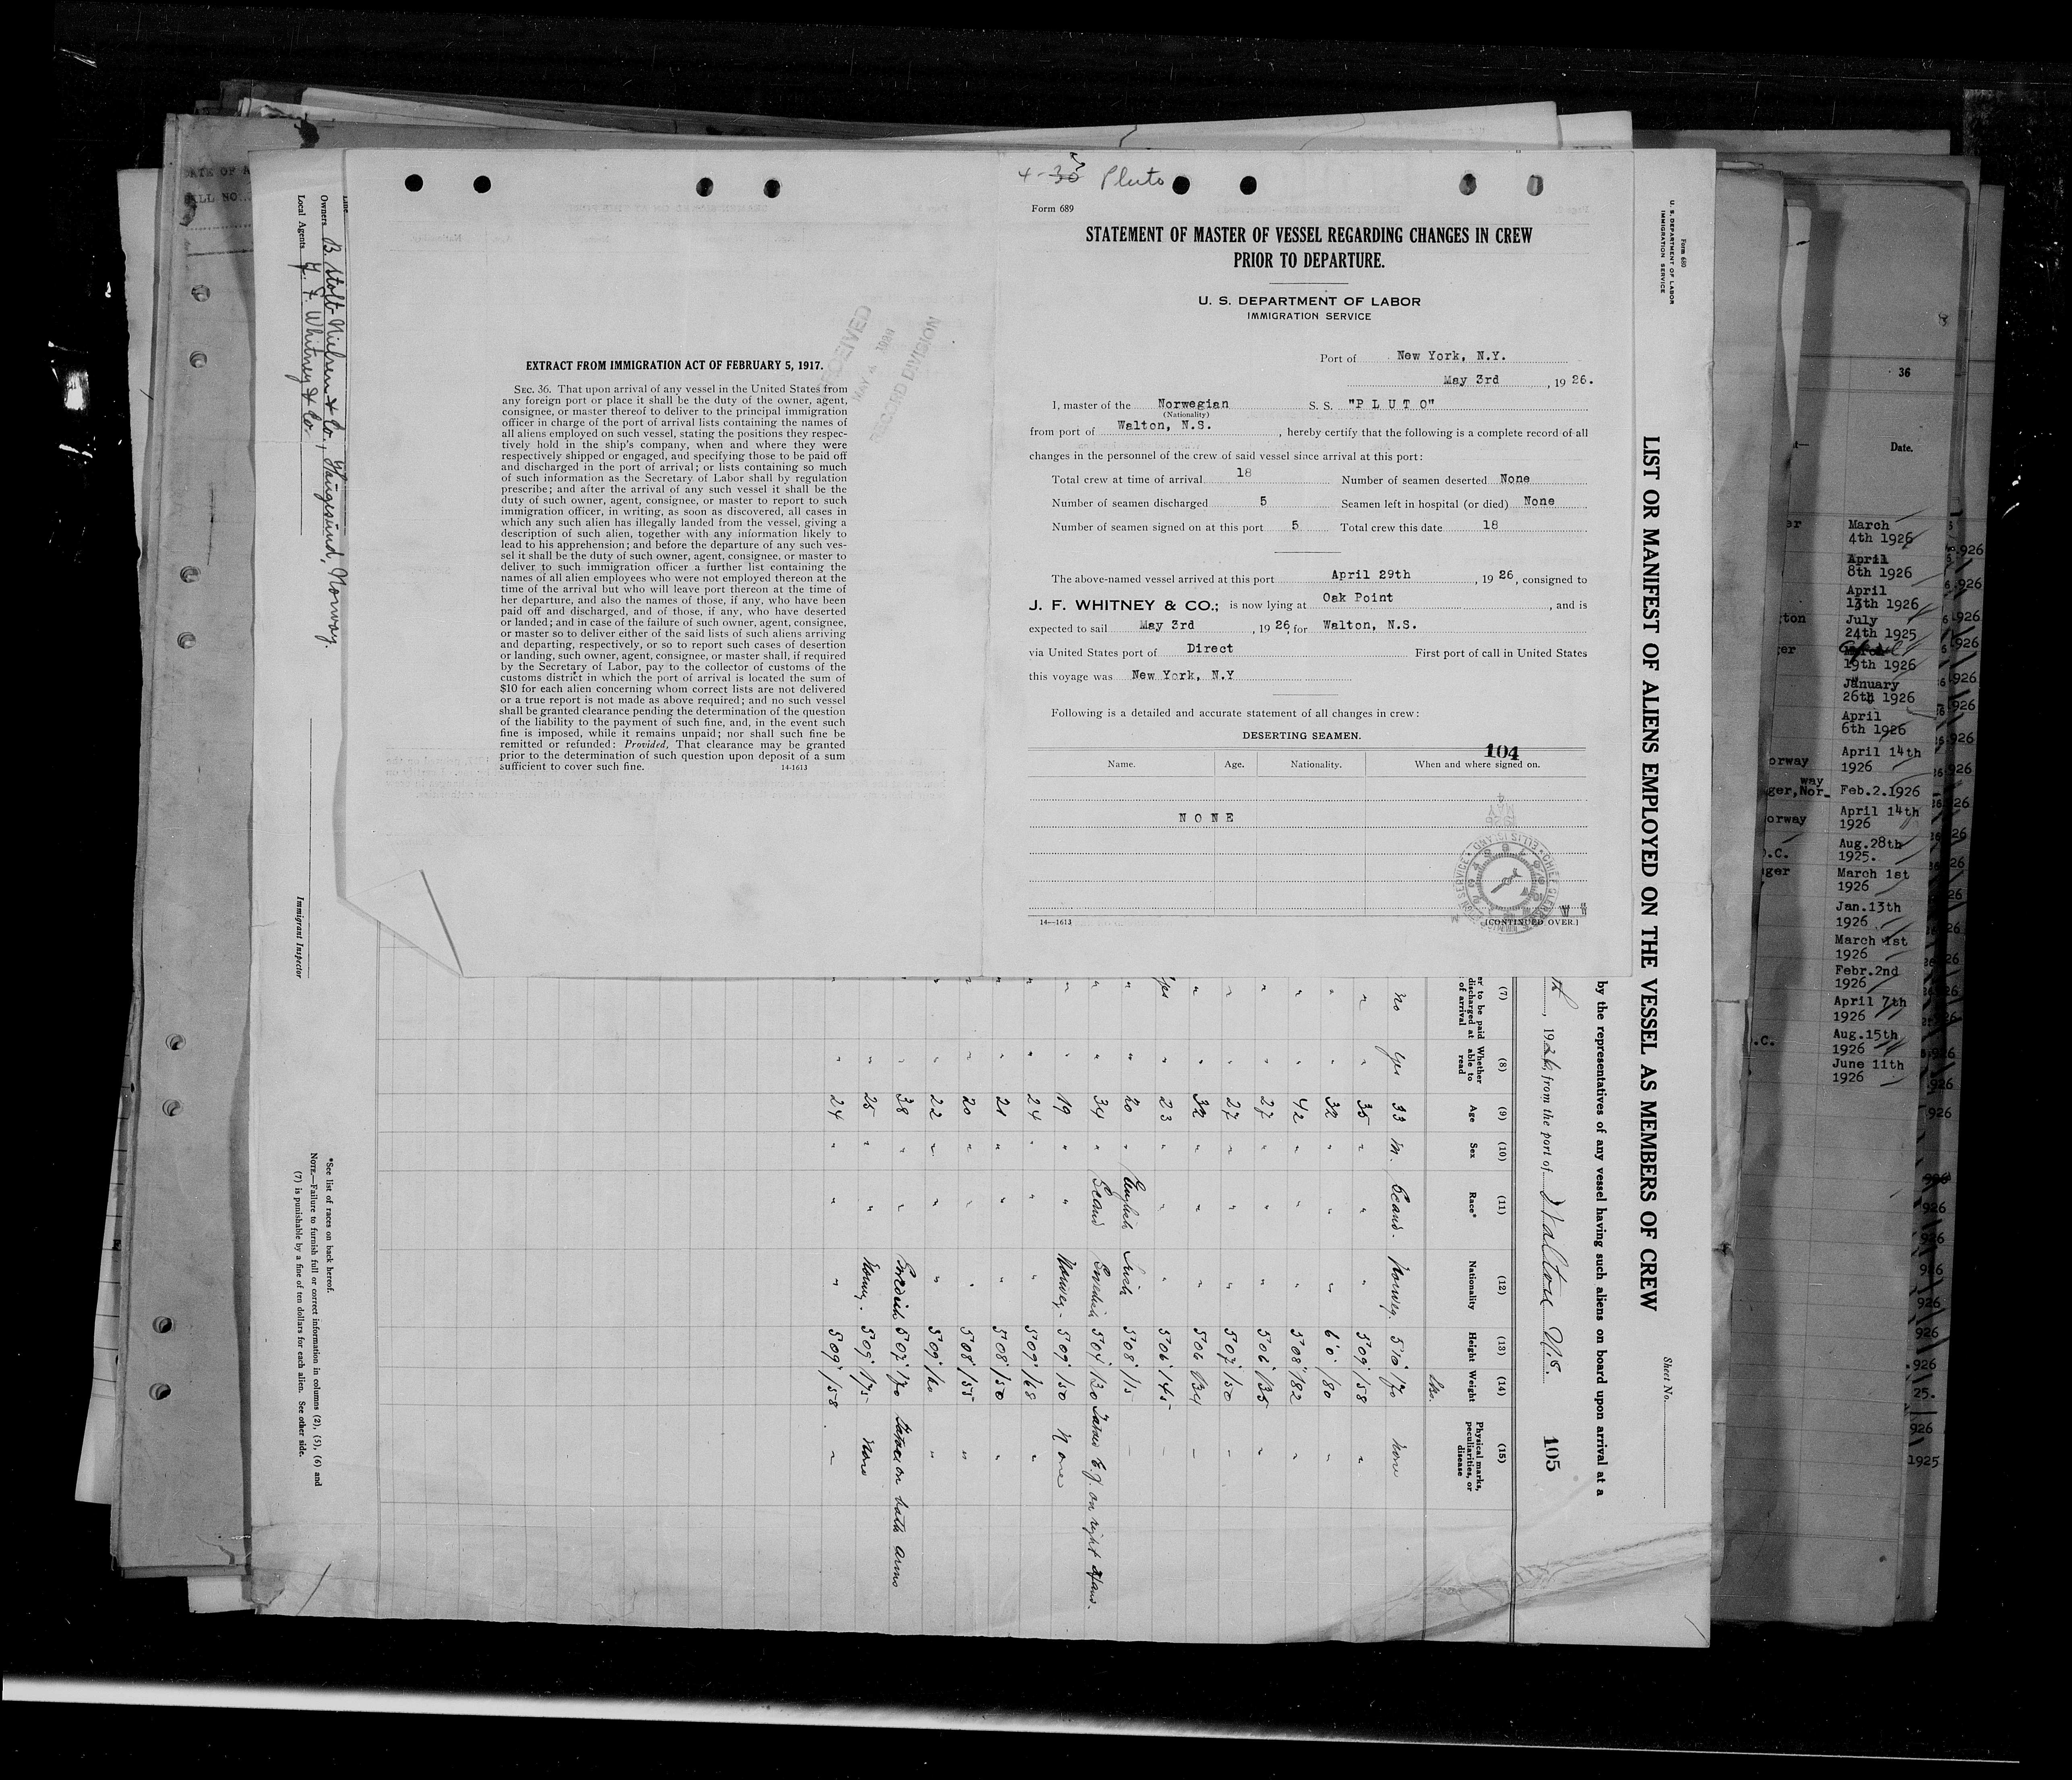 4-30 Pluto
Form 689
STATEMENT OF MASTER OF VESSEL REGARDING CHANGES IN CREW
PRIOR TO DEPARTURE.
U. S. DEPARTMENT OF LABOR
IMMIGRATION SERVICE
Port of New York, N.Y.
May 3rd, 1926.
I, master of the Norwegian S. S. "P L U T O"
(Nationality)
from port of Walton, N.S., hereby certify that the following is a complete record of all
changes in the personnel of the crew of said vessel since arrival at this port:
Total crew at time of arrival 18 Number of seamen deserted None
Number of seamen discharged 5 Seamen left in hospital (or died) None
Number of seamen signed on at this port 5 Total crew this date 18
The above-named vessel arrived at this port April 29th, 1926, consigned to
J. F. WHITNEY & CO.; is now lying at Oak Point, and is
expected to sail May 3rd, 1926, for Walton, N.S.
via United States port of Direct First port of call in United States
this voyage was New York, N.Y
Following is a detailed and accurate statement of all changes in crew:
DESERTING SEAMEN.
104
Name. Age. Nationality. When and where signed on.
N O N E
14—1613
[CONTINUED OVER.]
EXTRACT FROM IMMIGRATION ACT OF FEBRUARY 5, 1917.
SEC. 36. That upon arrival of any vessel in the United States from
any foreign port or place it shall be the duty of the owner, agent,
consignee, or master thereof to deliver to the principal immigration
officer in charge of the port of arrival lists containing the names of
all aliens employed on such vessel, stating the positions they respec-
tively hold in the ship's company, when and where they were
respectively shipped or engaged, and specifying those to be paid off
and discharged in the port of arrival; or lists containing so much
of such information as the Secretary of Labor shall by regulation
prescribe; and after the arrival of any such vessel it shall be the
duty of such owner, agent, consignee, or master to report to such
immigration officer, in writing, as soon as discovered, all cases in
which any such alien has illegally landed from the vessel, giving a
description of such alien, together with any information likely to
lead to his apprehension; and before the departure of any such ves-
sel it shall be the duty of such owner, agent, consignee, or master to
deliver to such immigration officer a further list containing the
names of all alien employees who were not employed thereon at the
time of the arrival but who will leave port thereon at the time of
her departure, and also the names of those, if any, who have been
paid off and discharged, and of those, if any, who have deserted
or landed; and in case of the failure of such owner, agent, consignee,
or master so to deliver either of the said lists of such aliens arriving
and departing, respectively, or so to report such cases of desertion
or landing, such owner, agent, consignee, or master shall, if required
by the Secretary of Labor, pay to the collector of customs of the
customs district in which the port of arrival is located the sum of
$10 for each alien concerning whom correct lists are not delivered
or a true report is not made as above required; and no such vessel
shall be granted clearance pending the determination of the question
of the liability to the payment of such fine, and, in the event such
fine is imposed, while it remains unpaid; nor shall such fine be
remitted or refunded: Provided, That clearance may be granted
prior to the determination of such question upon deposit of a sum
sufficient to cover such fine.
14-1613
RECEIVED
MAY 4 1926
RECORD DIVISION
Form 680
U. S. DEPARTMENT OF LABOR
IMMIGRATION SERVICE
LIST OR MANIFEST OF ALIENS EMPLOYED ON THE VESSEL AS MEMBERS OF CREW
Sheet No.
by the representatives of any vessel having such aliens on board upon arrival at a
th, 1926, from the port of Walton N.S.
105
(7) (8) (9) (10) (11) (12) (13) (14) (15)
er to be paid
discharged at
of arrival
Whether
able to
read
Age Sex Race* Nationality Height Weight
Physical marks,
peculiarities, or
disease
Lbs.
no yes 33 M. Scand. Norweg. 5'10" 170 none
" " 35 " " " 5'09" 158 "
" " 32 " " " 6'0" 180 "
" " 42 " " " 5'08" 182 "
" " 27 " " " 5'06" 135 "
" " 27 " " " 5'07" 150 "
" " 32 " " " 5'06 134 "
yes " 23 " " " 5'06" 145 "
" " 20 " English Irish 5'08" 115 "
" " 34 " Scand Swedish 5'04" 120 on right
" " 19 " " Norweg. 5'09" 150 None
" " 24 " " " 5'09" 168 "
" " 21 " " " 5'08" 150 "
" " 20 " " " 5'08" 155 "
" " 22 " " " 5'09" 160 "
" " 38 " " Swedish 5'07" 170 Tattoo on both arms
" " 25 " " Norweg. 5'09" 175 None
" " 24 " " " 5'09" 158 "
*See list of races on back hereof.
NOTE.—Failure to furnish full or correct information in columns (2), (5), (6) and
(7) is punishable by a fine of ten dollars for each alien. See other side.
Immigrant Inspector
Line
Owners B. Stolt-Nielsen & Co., Haugesund, Norway.
Local Agents J. F. Whitney & Co.
DATE OF A
36
Date.
March
4th 1926
April
8th 1926
April
13th 1926
July
24th 1925
19th 1926
January
26th 1926
April
6th 1926
April 14th
1926
Feb.2.1926
April 14th
1926
Aug.28th
1925.
March 1st
1926
Jan.13th
1926
March 1st
1926
Febr.2nd
1926
April 7th
1926
Aug.15th
1926
June 11th
1926